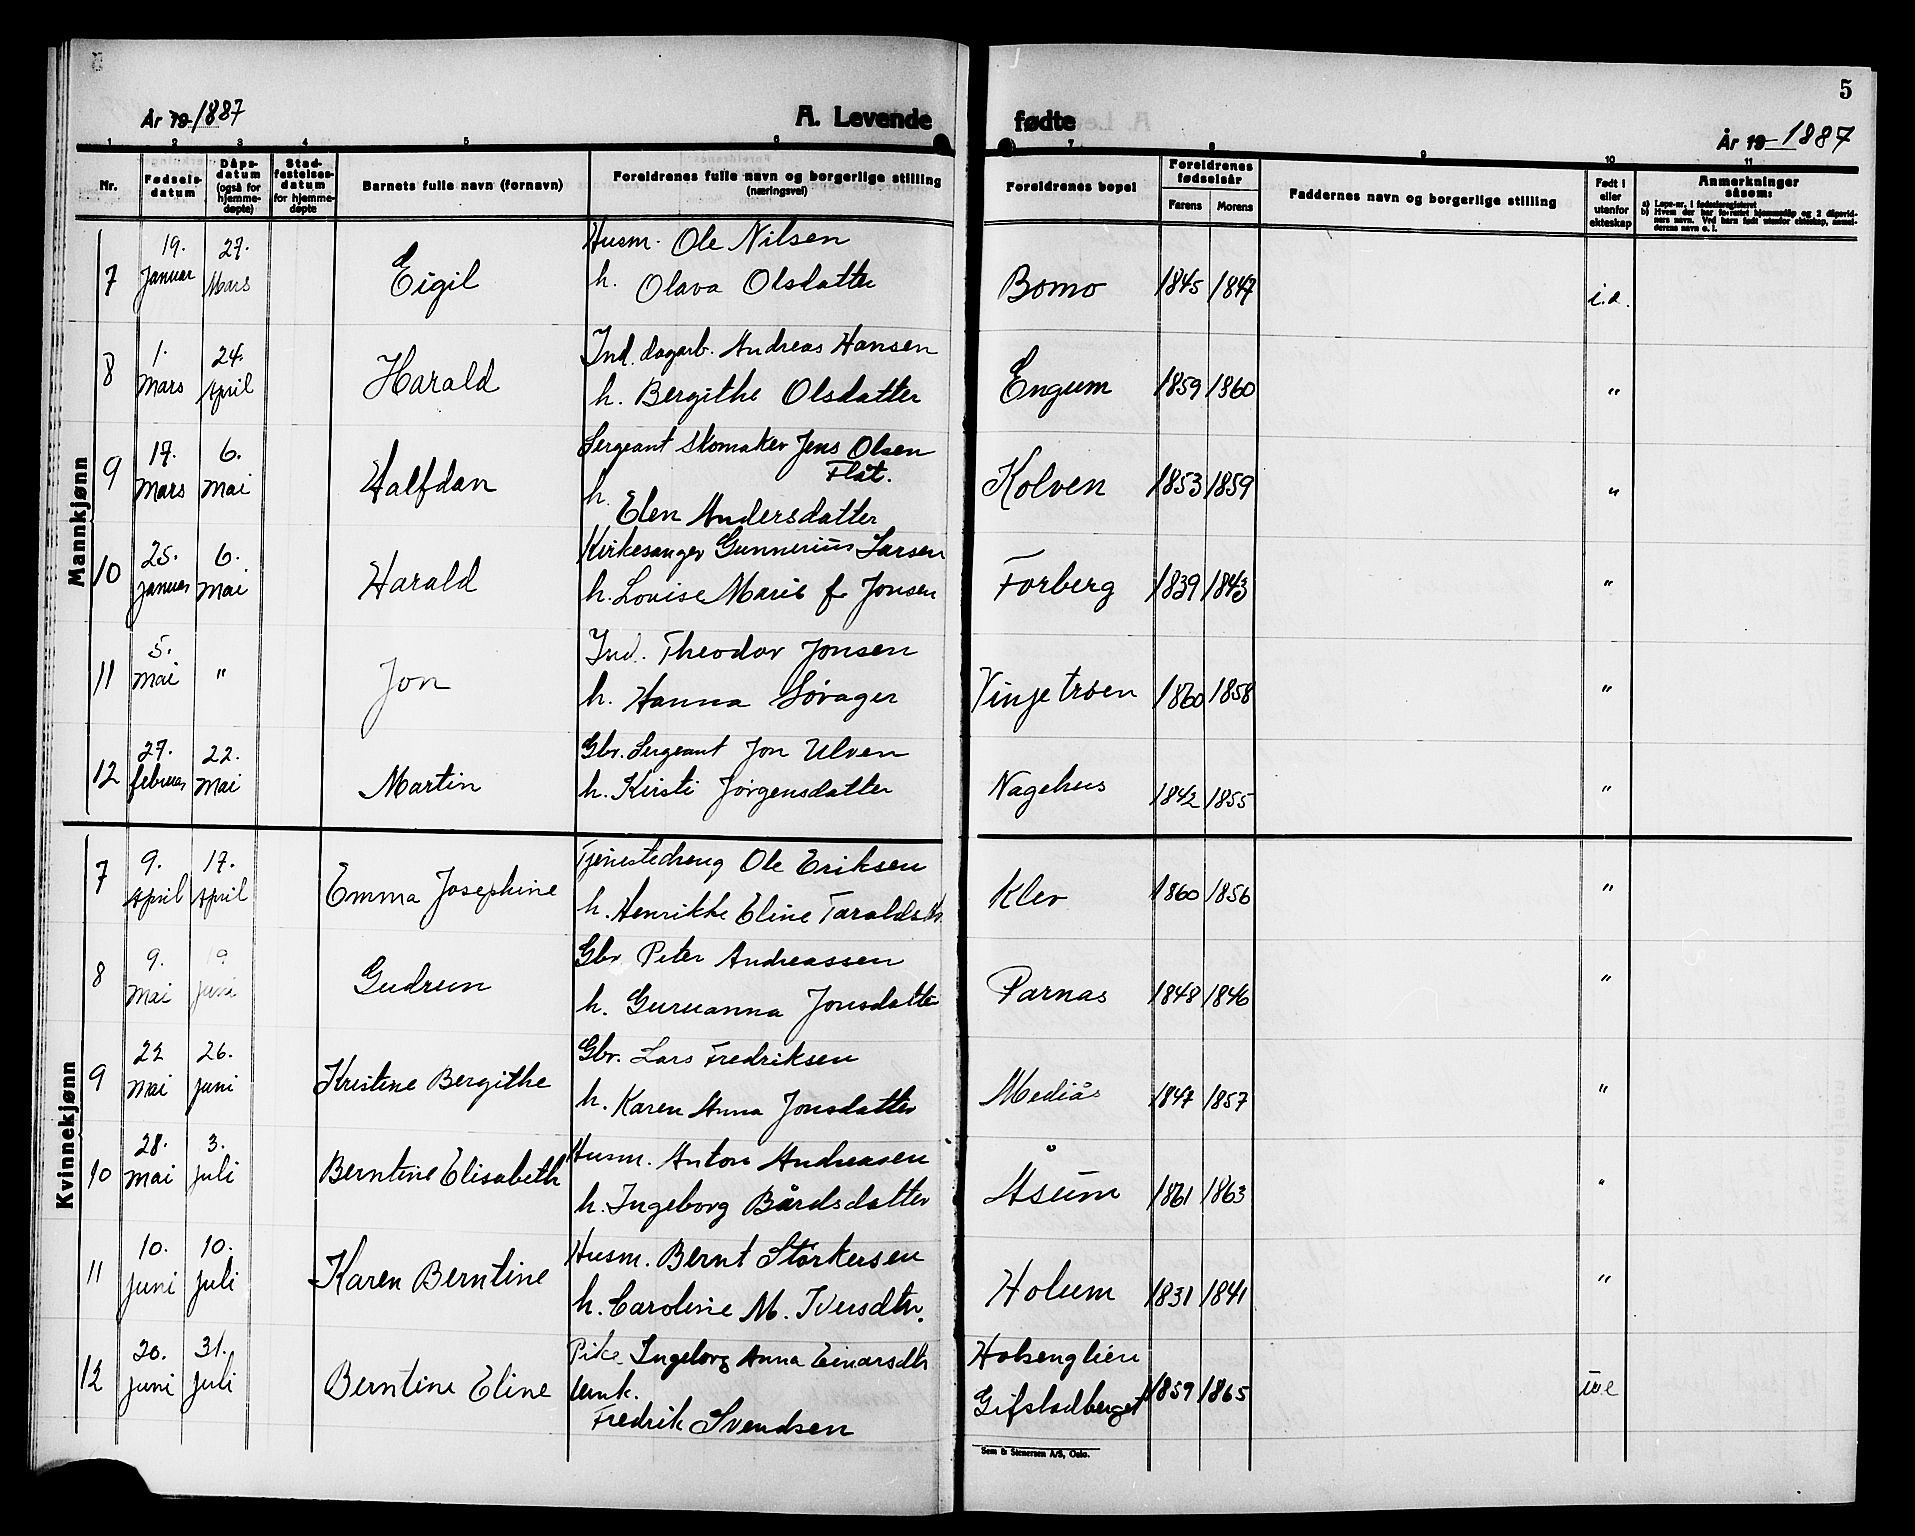 5
År 19 1887
A. Levende fødte
År 19 1887
1 2 3 4 5 6 7 8 9 10 11
Nr. Fødselsdatum Dåpsdatum (også for hjemmedøpte) Stadfestelsesdatum for hjemmedøpte Barnets fulle navn (fornavn) Foreldrenes fulle navn og borgerlige stilling (næringsvei) Foreldrenes bopel Foreldrenes fødselsår Farens Morens Faddernes navn og borgerlige stilling Født i eller utenfor ekteskap Anmerkninger såsom:
a) Løpe-nr. i fødselsregisteret
Mannkjønn
7 19. Januar 27. Mars Eigil Husm. Ole Nilsen
h. Olava Olsdatter Bomo 1845 1847 i.e.
8 1. Mars 24. April Harald Ind. dagarb. Andreas Hansen
h. Bergithe Olsdatter Engum 1859 1860 "
9 17. Mars 6. Mai Halfdan Sergeant Skomaker Jens Olsen
Flåt.
h. Elen Andersdatter Kolven 1853 1859 "
10 25. januar 6. Mai Harald Kirkesanger Gunnerius Larsen
h. Lovise Marie f. Jonsen Forberg 1839 1843 "
11 5. Mai " Jon Ind. Theodor Jonsen
h. Hanna Løvager Vinjetrøen 1860 1858 "
12 27. februar 22. Mai Martin Gbr. Sergeant Jon Ulven
h. Kirsti Jørgensdatter Nagehus 1842 1855 "
Kvinnekjønn
7 9. April 17. April Emma Josephine Tjenestedreng Ole Eriksen
h. Henrikke Eline Taraldsdtr. Klev 1860 1856 "
8 9. Mai 19 Juni Gudrun Gbr Peter Andreassen
h. Guruanna Jonsdatter Parnas 1848 1846 "
9 22 Mai 26. juni Kristine Bergithe Gbr. Lars Fredriksen
h. Karen Anna Jonsdatter Mediås 1847 1857 "
10 28. Mai 3. juli Berntine Elisabeth Husm. Anton Andreasen
h. Ingeborg Bårdsdatter Åsum 1861 1863 "
11 10. juni 10. juli Karen Berntine Husm. Bernt Størkersen
h. Caroline M. Iversdtr. Holum 1831 1841 "
12 20. juni 31. juli Berntine Eline Pike Ingeborg Anna Einarsdtr Holsenglien
Umk. Gifstadberget 1859 1865 u.e
Fredrik Svendsen
Sem & Stenersen A/S, Oslo.